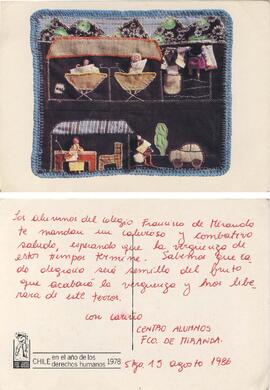 Los alumnos del colegio Francisco de Miranda
te mandan un caluroso y combativo
saludo, esperando que la verguenza de
estos tiempos termine. Sabemos que la
do degrado será semilla del fruto
que acabará la verguenza y nos libe
rara de este terror.
con cariño
CENTRO ALUMNOS
FCO. DE MIRANDA.
Stgo. 19 agosto 1986
CHILE en el año de los
derechos humanos 1978